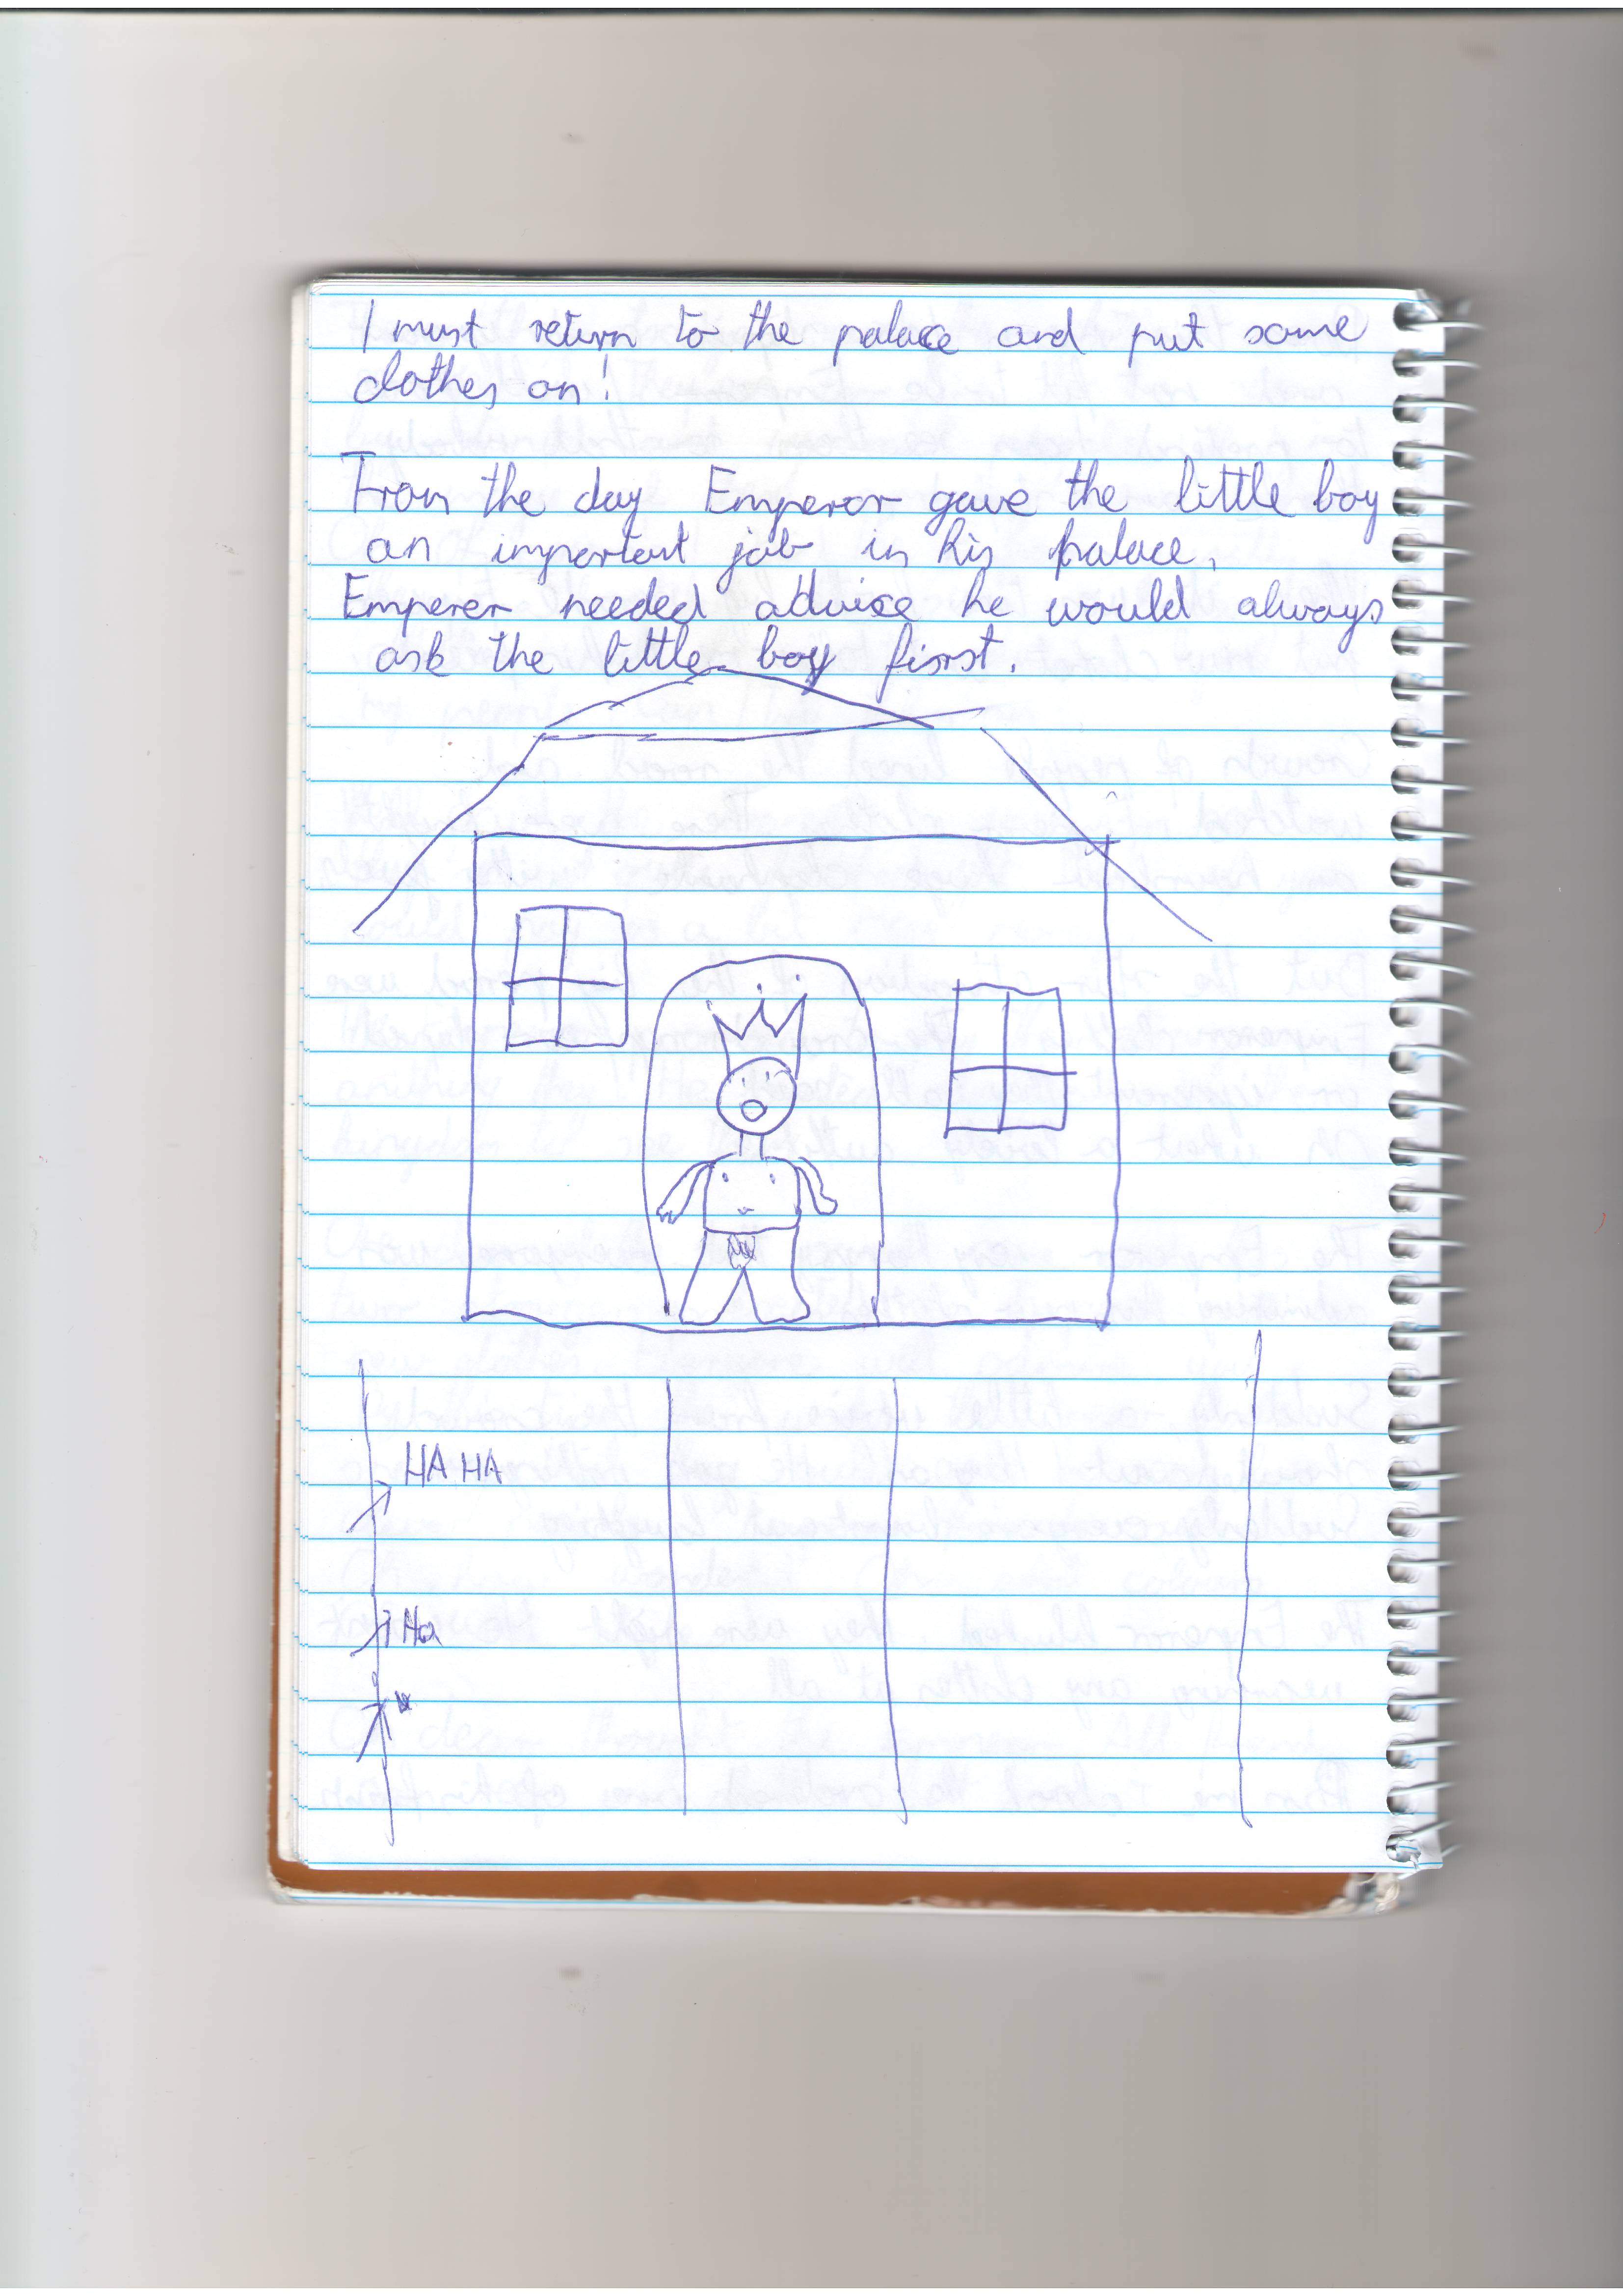 I must return to the palace and put some
clothes on!
From the day Emperor gave the little boy
an important job in his palace.
Emperer needed advice he would always
ask the little boy first.
HA HA
Ha